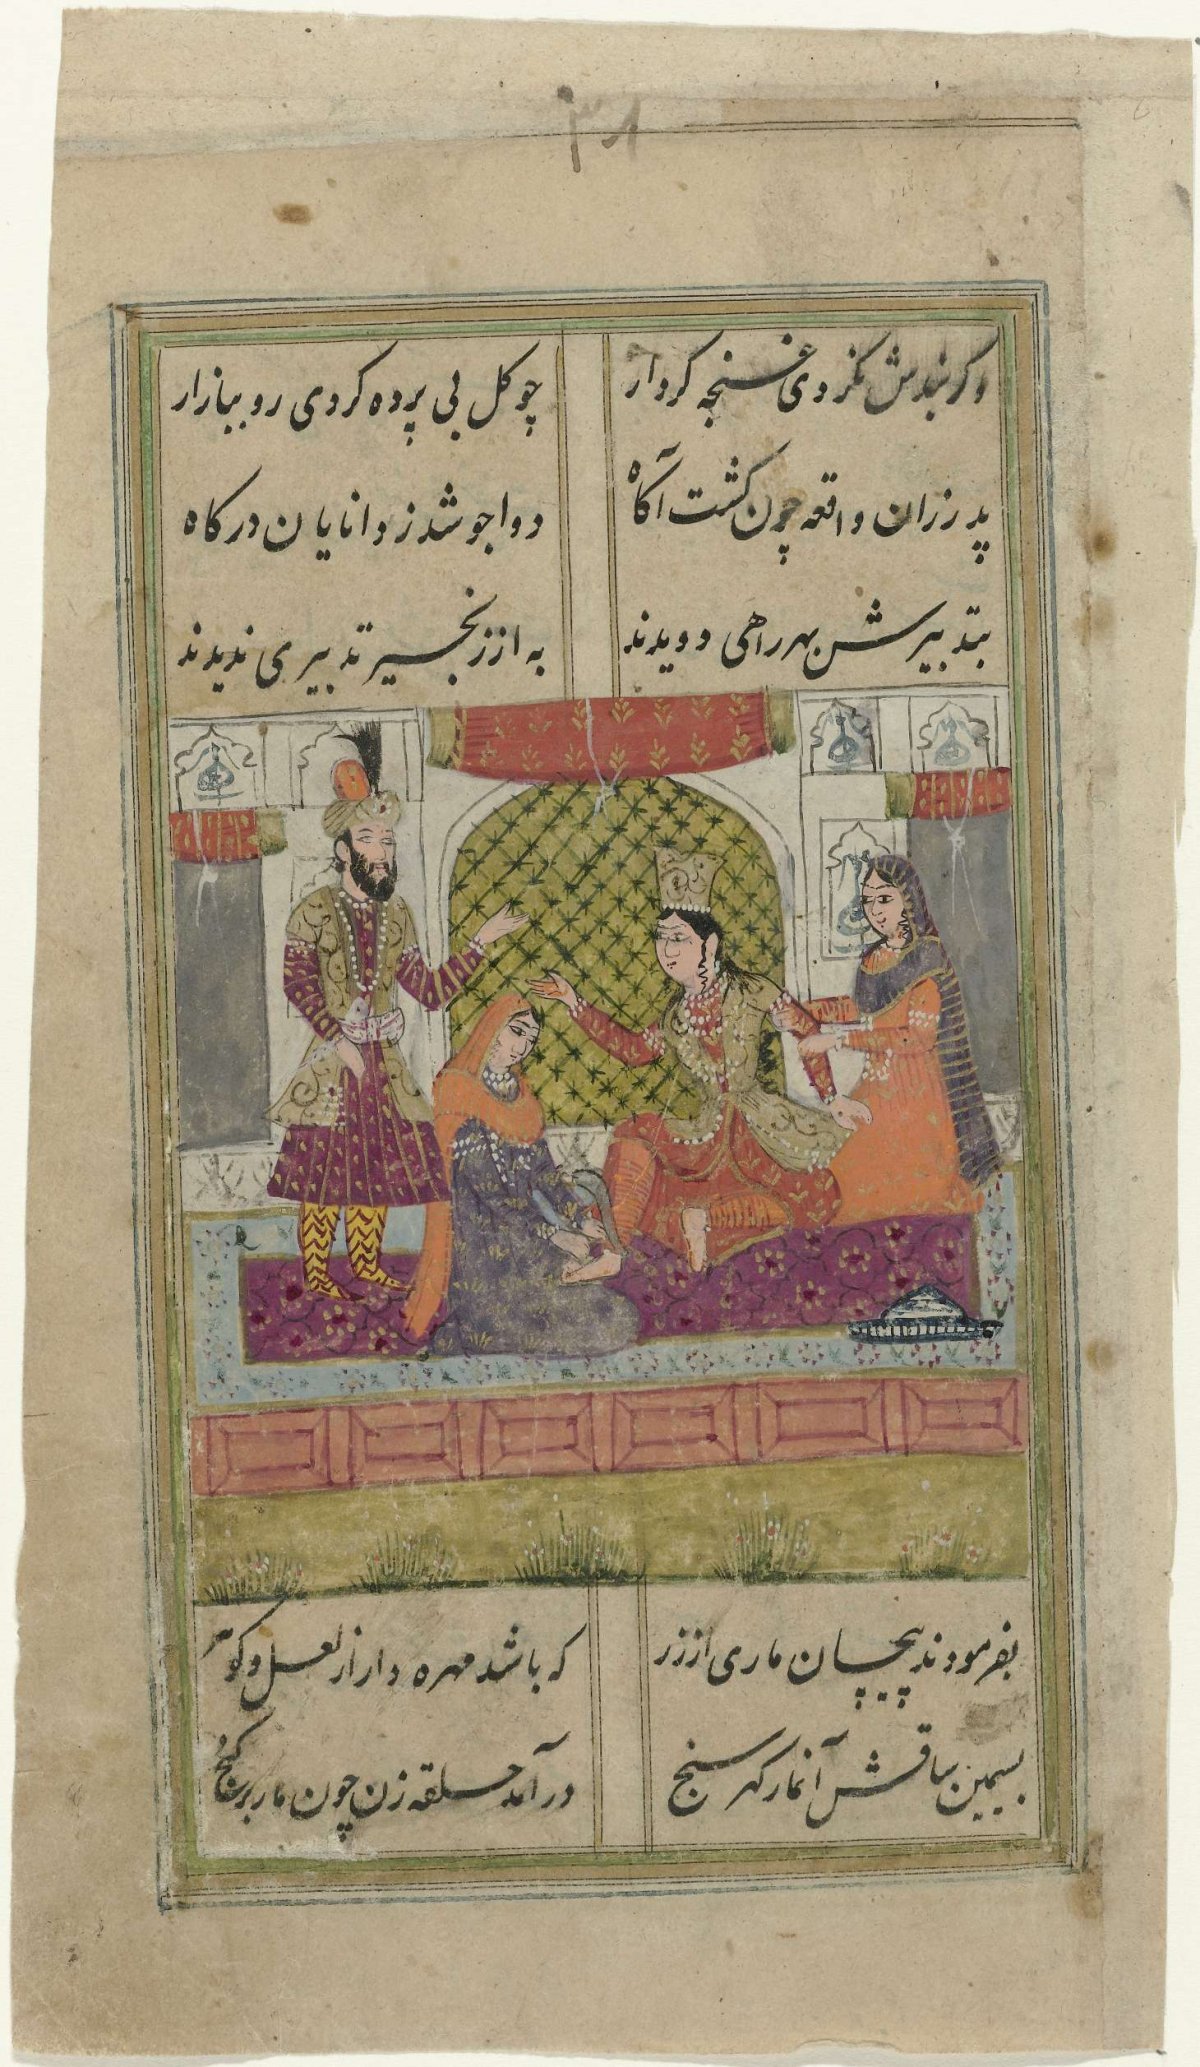 ۳۸
وکر بندش نکردی غنچه کردار چو کل بی پرده کردی رو ببازار
پدر زان واقعه چون کشت آکاه دوا جو شد ز دانایان درکاه
بتدبیرش بهر راهی دویدند به از زنجیر تدبیری ندیدند
بفرمودند پیچان ماری از زر که باشد مهره دار از لعل و کوهر
بسیمین ساقش آنمار کهر سنج درآمد حلقه زن چون مار بر کنج